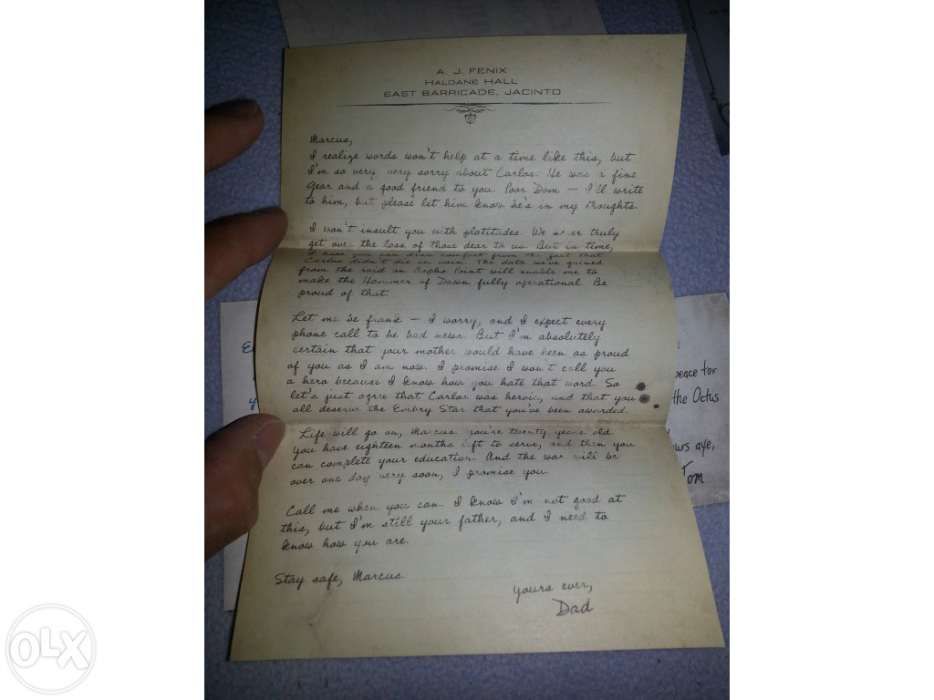 A. J. FENIX
HALDANE HALL
EAST BARRICADE, JACINTO
Marcus,
I realize words won't help at a time like this, but
I'm so very very sorry about Carlos. He was a fine
Gear and a good friend to you. Poor Dom — I'll write
to him, but please let him know he's in my thoughts.
I won't insult you with platitudes. We never truly
get over the loss of those dear to us. But in time,
I hope you can draw comfort from the fact that
Carlos didn't die in vain. The data we've gained
from the raid on Aspho Point will enable me to
make the Hammer of Dawn fully operational. Be
proud of that.
Let me be frank — I worry, and I expect every
phone call to be bad news. But I'm absolutely
certain that your mother would have been as proud
of you as I am now. I promise I won't call you
a hero because I know how you hate that word. So
let's just agree that Carlos was heroic, and that you
all deserve the Embry Star that you've been awarded.
Life will go on, Marcus. You're twenty years old.
You have eighteen months left to serve, and then you
can complete your education. And the war will be
over one day very soon, I promise you.
Call me when you can. I know I'm not good at
this, but I'm still your father, and I need to
know how you are.
Stay safe, Marcus
Yours ever,
Dad
peace for
the Octus
aye,
Tom
OLX